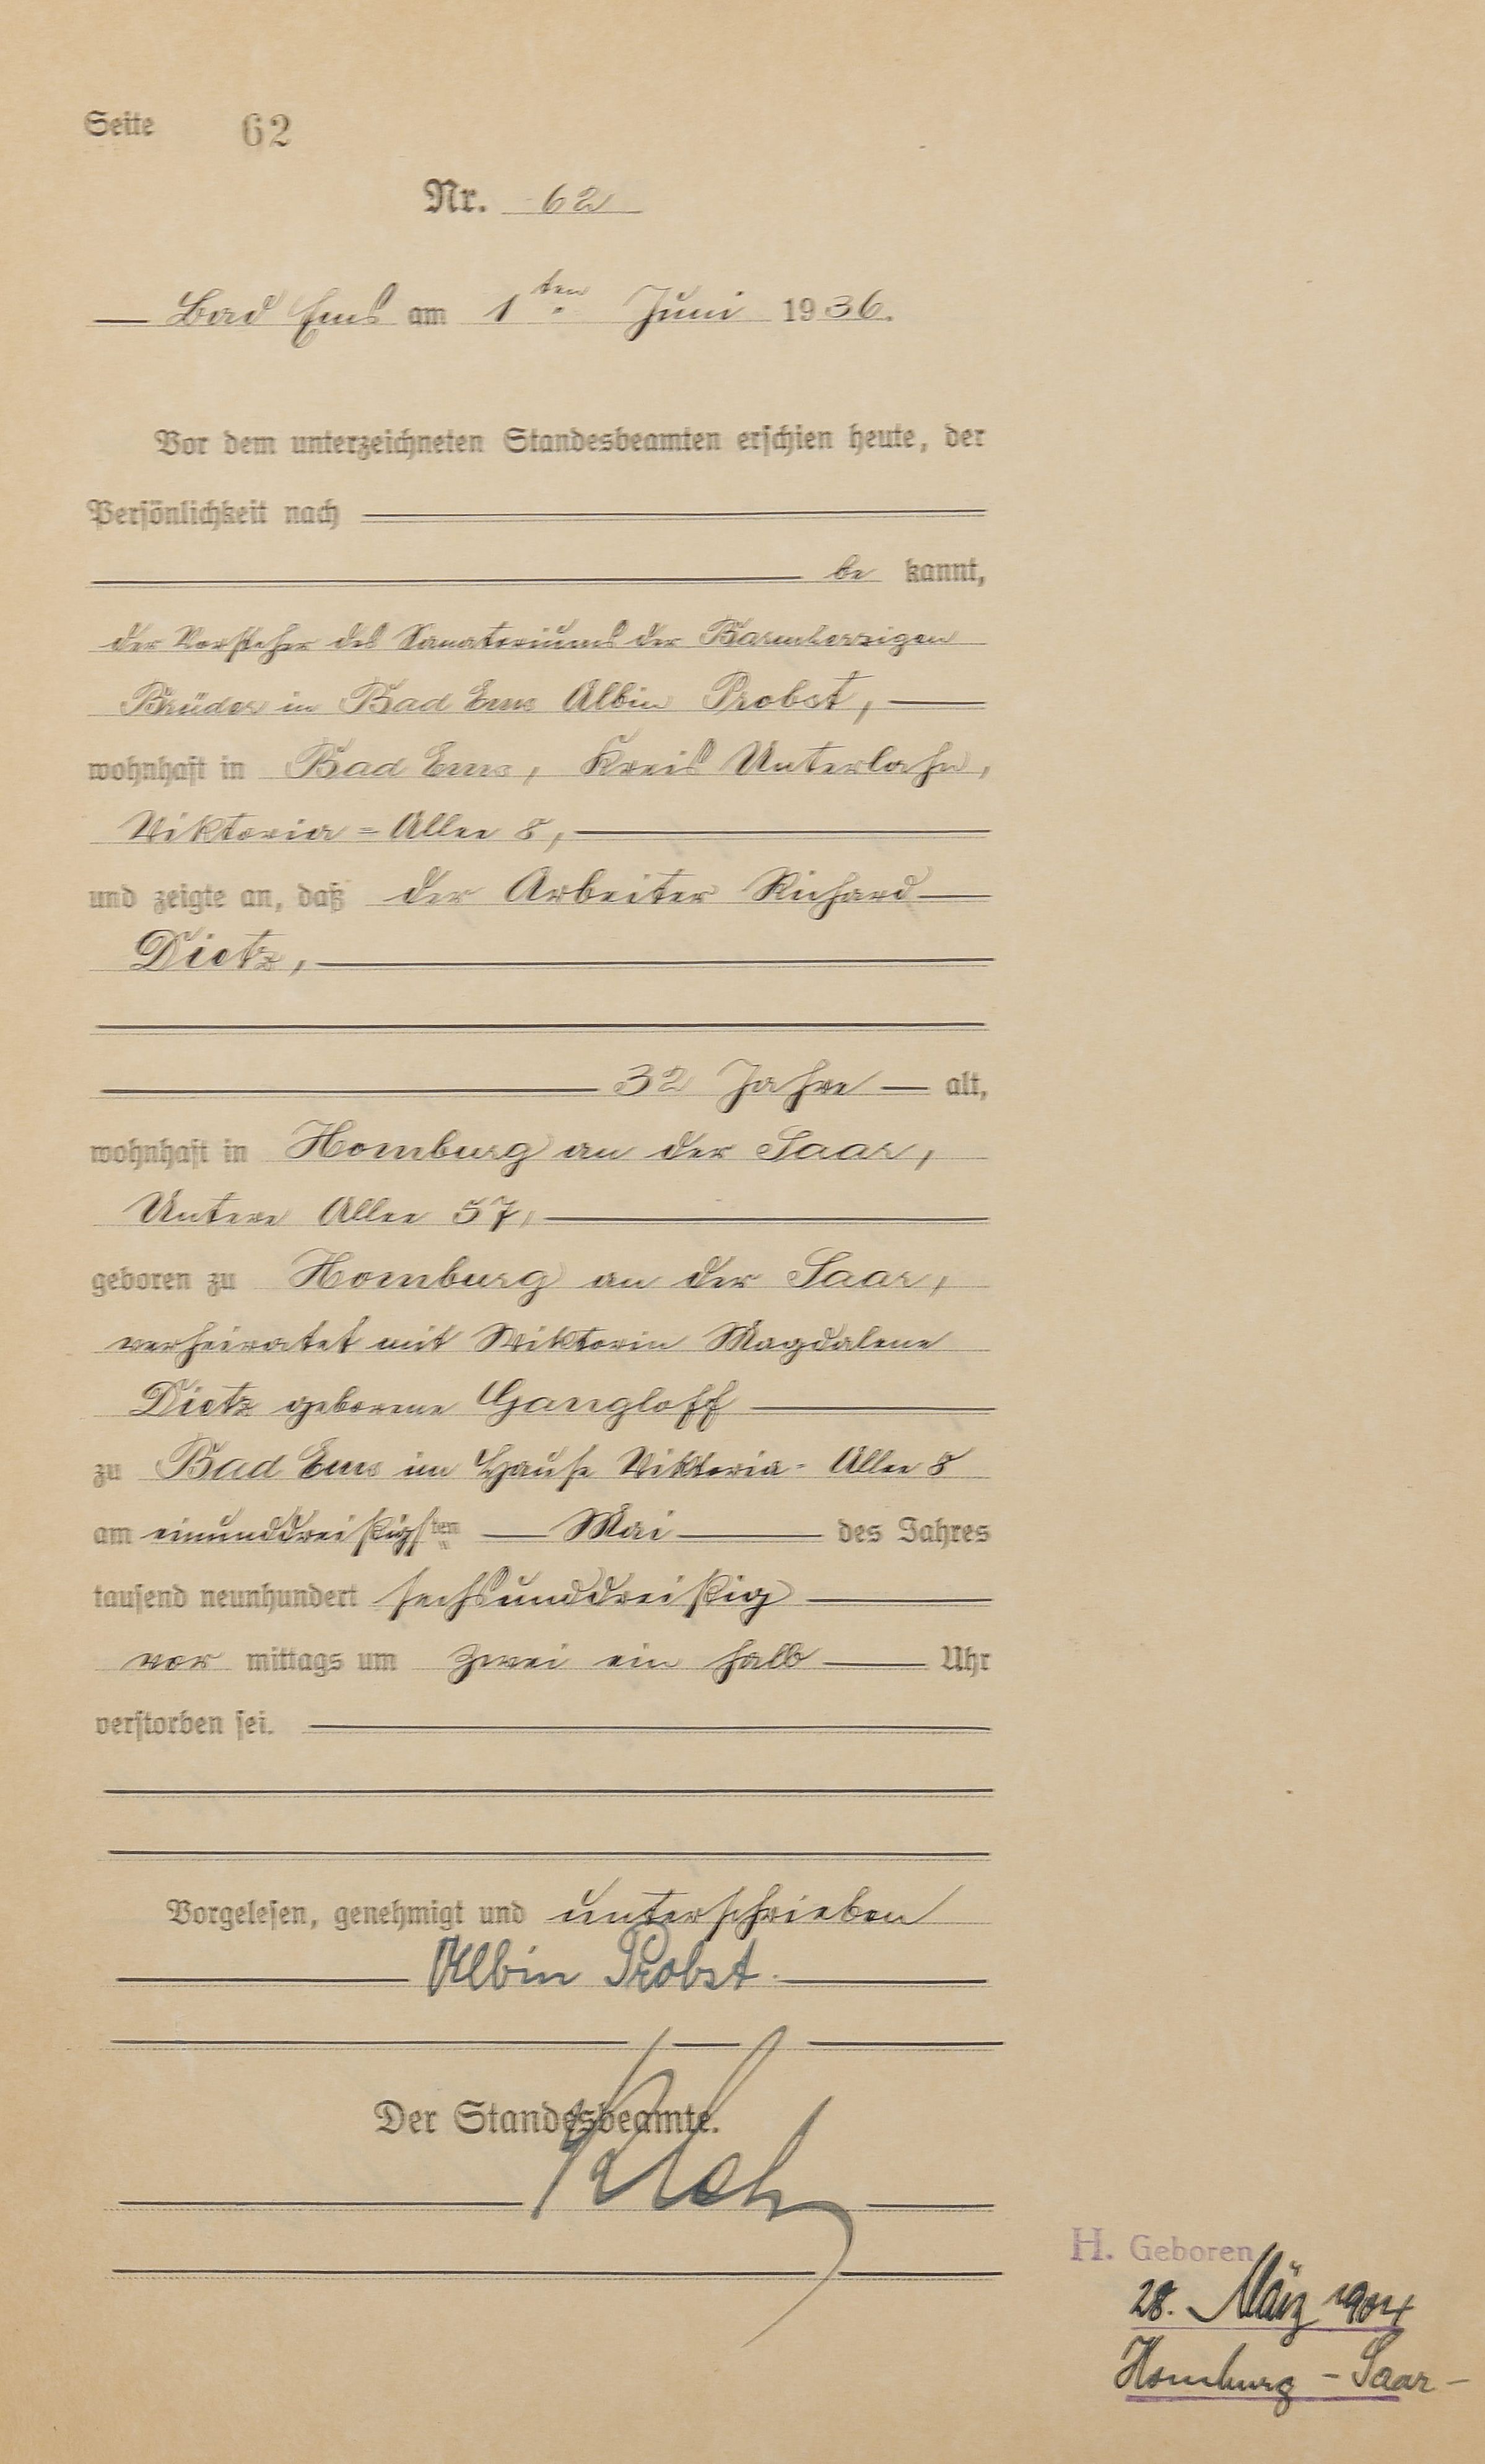 Seite 62
Nr. 62
Bad Ems am 1ten Juni 1936.
Vor dem unterzeichneten Standesbeamten erschien heute, der
Persönlichkeit nach
be kannt,
der Vorsteher des Sanatoriums der Barmherzigen
Brüder in Bad Ems Albin Probst,
wohnhaft in Bad Ems, Kreis Unterlahn,
Viktoria=Allee 8,
und zeigte an, daß der Arbeiter Richard
Dietz,
32 Jahre alt,
wohnhaft in Homburg an der Saar,
Untere Allee 57,
geboren zu Homburg an der Saar,
verheiratet mit Viktoria Magdalene
Dietz geborene Gangloff
zu Bad Ems im Hause Viktoria-Allee 8
am einunddreißigsten Mai des Jahres
tausend neunhundert sechsunddreißig
vor mittags um zwei ein halb Uhr
verstorben sei.
Vorgelesen, genehmigt und unterschrieben
Albin Probst.
Der Standesbeamte.
H. Geboren
28. März 1904
Homburg - Saar -